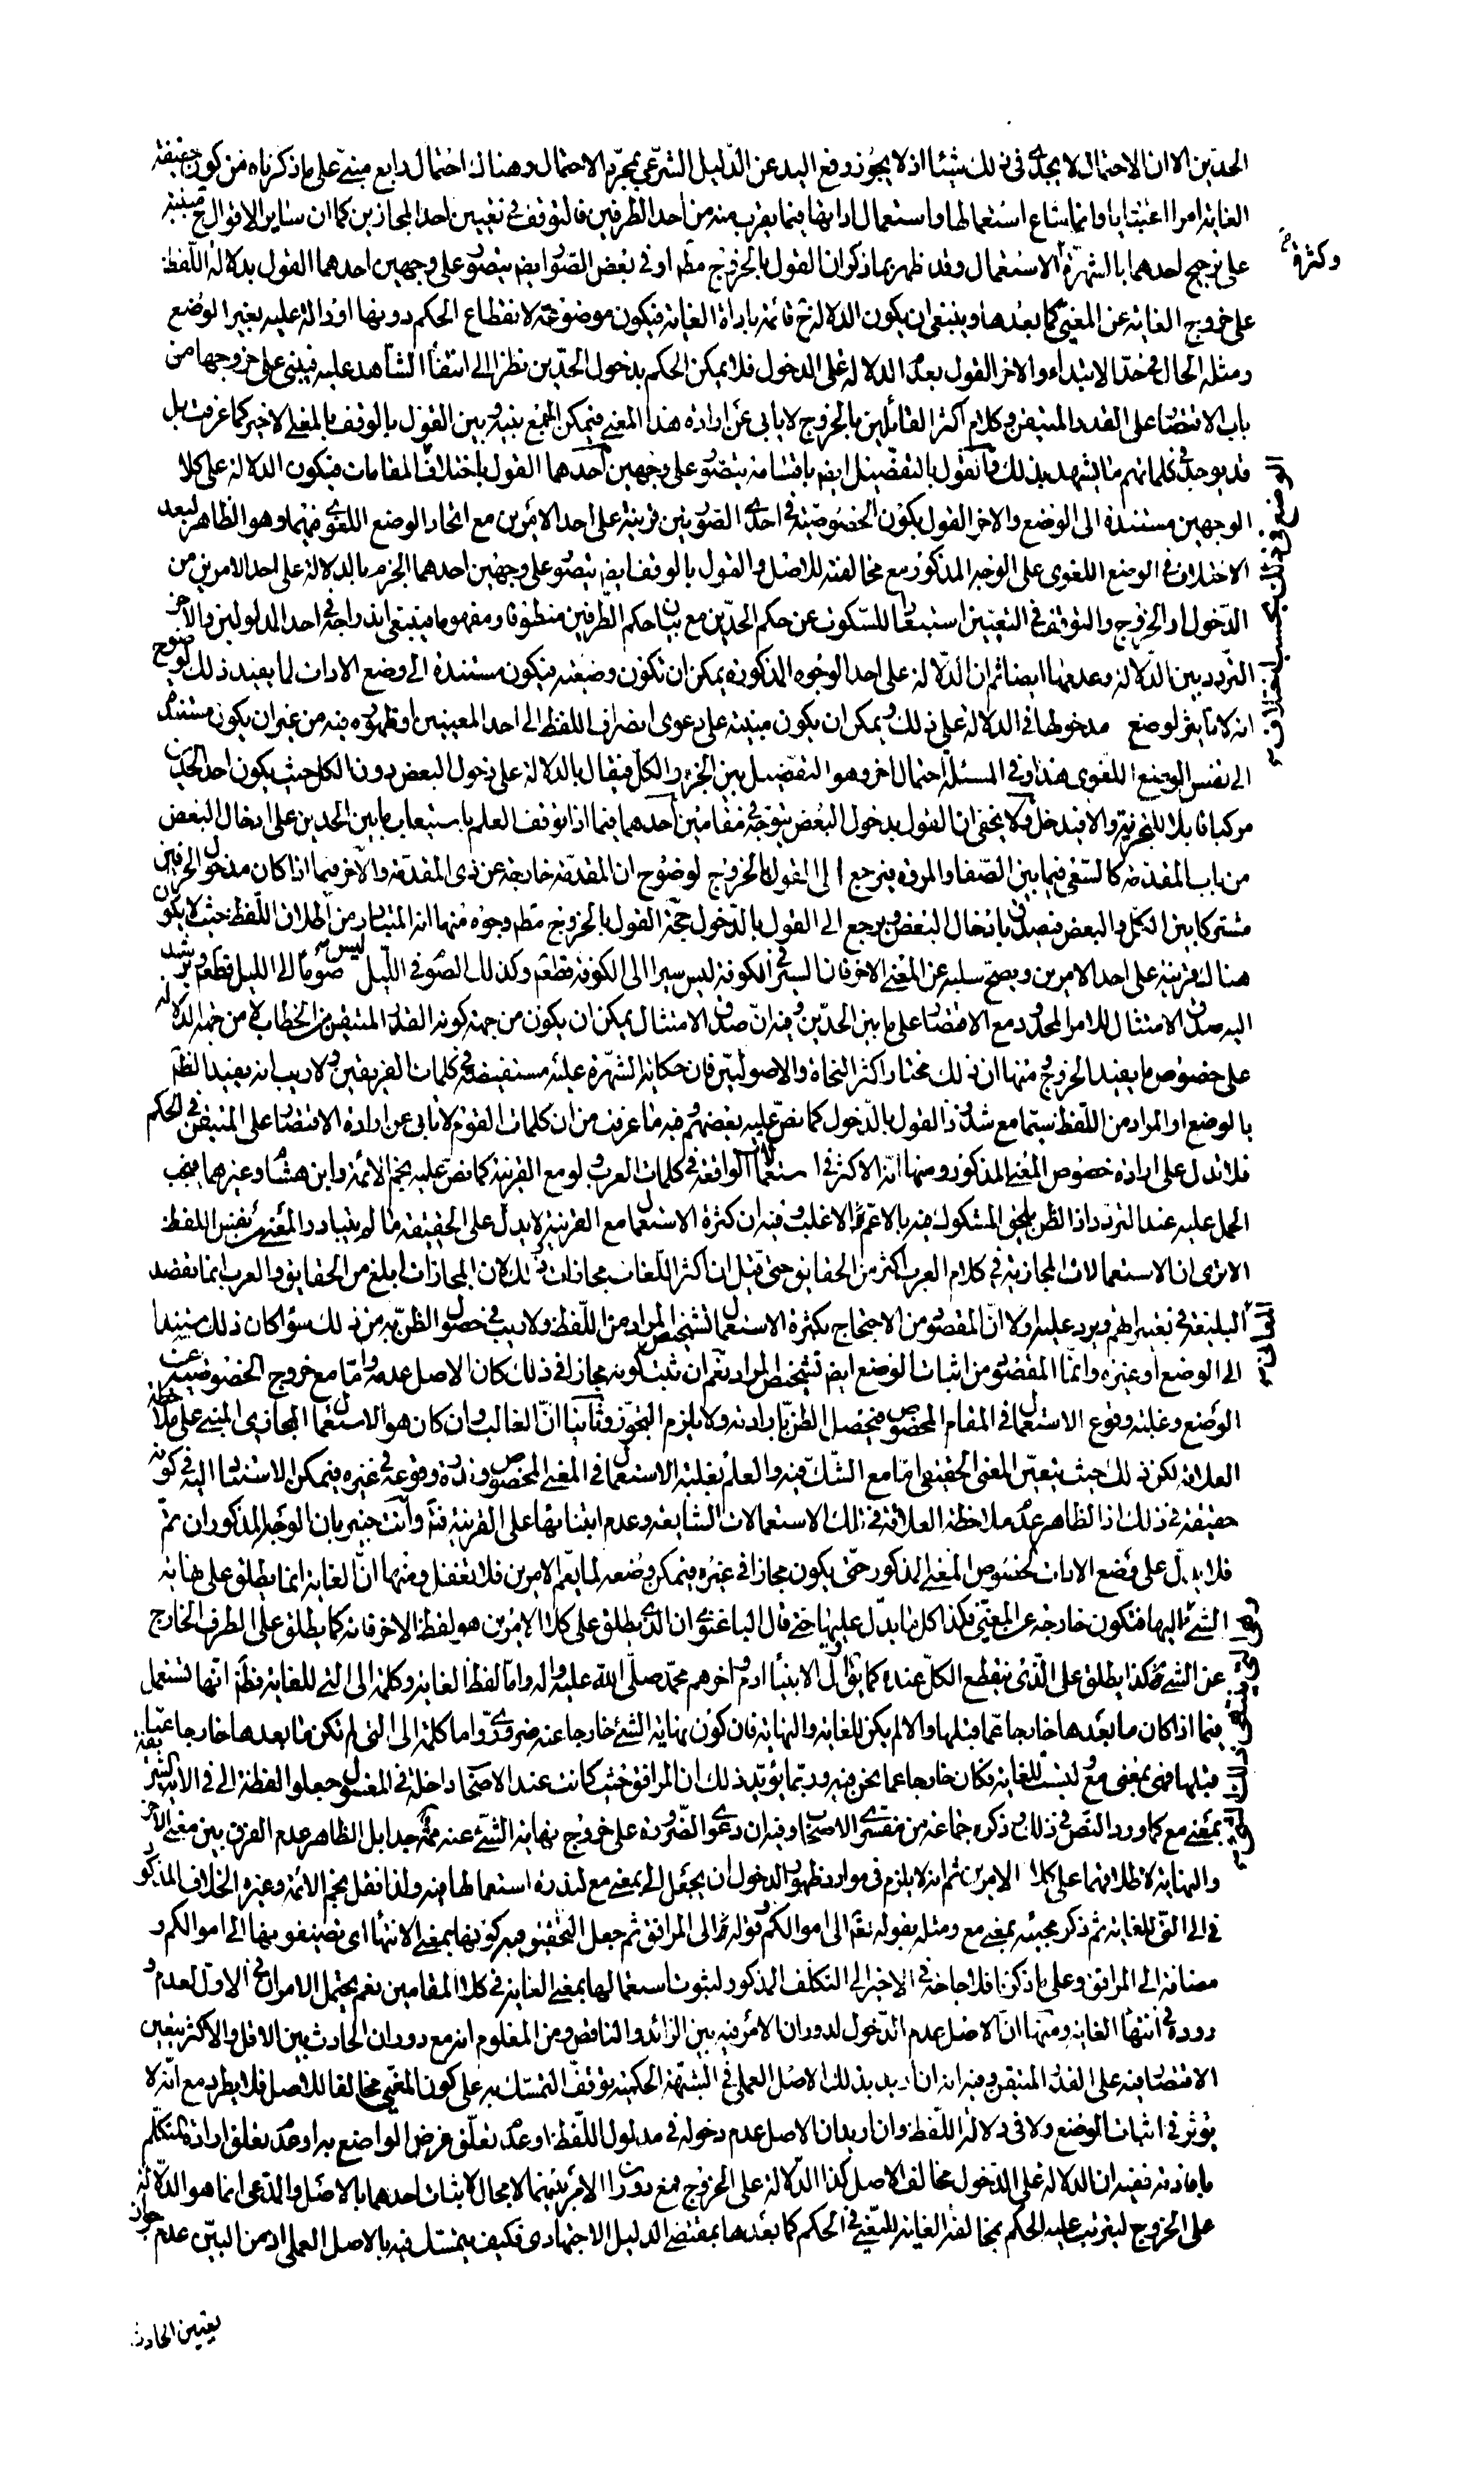 الحدّين الا ان الاحتمال لا يجدى فى ذلك شيئا اذ لا يجوز رفع اليد عن الدّليل الشرّعى بمجرّد الاحتمال وهناك احتمال رابع مبنىّ على ما ذكرناه من كون حقيقة
الغاية امرا اعتباريا وانما شاع استعمالها واستعمال اداتها فيما يقرب منه من احد الطرفين فالتوقف فى تعيين احد المجازين كما ان ساير الاقوال ح مبنيّة
على ترجيح احدهما بالشهرة الاستعمال وقد ظهر بما ذكر ان القول بالخروج مطم او فى بعض الصّور ايضم يتصوّر على وجهين احدهما القول بدلالة اللّفظ
وكثرة صح
على خروج الغاية عن المغيّى كما بعدها وينبغى ان يكون الدلالة ح قائمة باداة الغاية فيكون موضوعة لانقطاع الحكم دونها او دالة عليه بغير الوضع
ومثله الحال فى حدّ الابتداء والاخر القول بعدم الدلالة على الدخول فلا يمكن الحكم بدخول الحدّين نظرا الى انتفاء الشّاهد عليه فيبنى على خروجهما من
باب الاقتصار على القدر المتيقن وكلام اكثر القائلين بالخروج لا يابى عن ارادة هذا المعنى فيمكن الجمع بينه وبين القول بالوقف بالمعنى الاخير كما عرفت بل
قد يوجد فى كلماتهم ما يشهد بذلك كما القول بالتفصيل ايضم باقسامه يتصوّر على وجهين احدهما القول باختلاف المقامات فيكون الدلالة على كلا
الوجهين مستندة الى الوضع والاخر القول بكون الخصوصيّة فى احدى الصّورتين قرينة على احد الامرين مع اتحاد الوضع اللغوى فيهما وهو الظاهر لبعد
الاختلاف فى الوضع اللغوى على الوجه المذكور مع مخالفته للاصل والقول بالوقف ايضم يتصوّر على وجهين احدهما الجزم بالدلالة على احد الامرين من
الوضع فى ذلك بحسب اختلاف صح
الدّخول او الخروج والتوقف فى التعيين استتباعا للسّكوت عن حكم الحدّين مع بيان حكم الطّرفين منطوقا ومفهوما فينبغى اندراجه فى احد المدلولين والاخر
التردد بين الدّلالة وعدمها ايضا ثم ان الدّلالة على احد الوجوه المذكورة يمكن ان تكون وضعيّة فيكون مستندة الى وضع الادات لما يفيد ذلك لوضوح
انه لا تاثير لوضع مدخولها فى الدلالة على ذلك ويمكن ان يكون مبنيّة على دعوى انصراف اللفظ الى احد المعنيين او ظهوره فيه من غير ان يكون مستندة
الى نفس الوضع اللغوى هذا وفى المسئلة احتمال اخر وهو التفصيل بين الجزء والكلّ فيقال بالدلالة على دخول البعض دون الكل حيث يكون احد الحدّين
مركبا قابلا للتجزية والا فيدخل ولا يخفى ان القول بدخول البعض يتوجّه فى مقامين احدهما فيما اذا توقف العلم باستيعاب ما بين الحدين على ادخال البعض
من باب المقدمة كالسّعى فيما بين الصّفا والمروة فيرجع الى القول بالخروج لوضوح ان المقدّمة خارجة عن ذى المقدّمة والآخر فيما اذا كان مدخول الحرفين
مشتركا بين الكلّ والبعض فيصدق بادخال البعض ويرجع الى القول بالدّخول حجّة القول بالخروج مطم وجوه منها انه المتبادر من اطلاق اللّفظ حيث لا يكون
هناك قرينة على احد الامرين ويصحّ سلبه عن المعنى الاخر فان السير فى الكوفة ليس سيرا الى الكوفة قطعم وكذلك الصّوم فى اللّيل ليس صوما الى الليل قطعم ويرشد
اليه صدق الامتثال للامر المحدود مع الاقتصار على ما بين الحدّين وفيه انّ صدق الامتثال يمكن ان يكون من جهة كونه القدر المتيقن من الخطاب لا من جهة الدلالة
على خصوص ما يفيد الخروج ومنها ان ذلك مختار اكثر النحاة والاصوليّين فان حكاية الشهرة عليه مستفيضة فى كلمات الفريقين ولا ريب انه يفيد الظّم
بالوضع او المراد من اللّفظ سيّما مع شذوذ القول بالدّخول كما نصّ عليه بعضهم وفيه ما عرفت من انّ كلمات القوم لا تابى عن ارادة الاقتصار على المتيقن فى الحكم
فلا تدل على ارادة خصوص المعنى المذكور ومنها انه الاكثر فى استعمالات الواقعة فى كلمات العرب ولو مع القرينة كما نصّ عليه نجم الائمة وابن هشام وغيرهما فيجب
الحمل عليه عند التردد اذ الظن يلحق المشكوك فيه بالاعمّ الاغلب وفيه ان كثرة الاستعمال مع القرينة لا يدلّ على الحقيقة ما لم يتبادر المعنى من نفس اللفظ
الا ترى ان الاستعمالات المجازية فى كلام العرب اكثر من الحقايق حتى قيل ان اكثر اللّغات مجازات وذلك لان المجازات ابلغ من الحقايق والعرب انما تقصد
المعانى صح
البليغة فى تعبيراتهم ويرد عليه اولا انّ المقصود من الاحتجاج بكثرة الاستعمال تشخيص المراد من اللّفظ ولا ريب فى حصول الظن به من ذلك سواء كان ذلك مستندا
الى الوضع او غيره وانّما المقصود من اثبات الوضع ايضم تشخيص المراد نعم ان ثبت كونه مجازا فى ذلك كان الاصل عدمه وامّا مع خروج الخصوصية عن
الوضع وغلبة وقوع الاستعمال فى المقام المخصوص فيحصل الظن بارادته ولا يلزم التجوّز وثانيا انّ الغالب وان كان هو الاستعمال المجازى المبنى على ملاحظة
العلاقة لكن ذلك حيث يتعيّن المعنى الحقيقى امّا مع الشّك فيه والعلم بغلبة الاستعمال فى المعنى المخصوص وندرة وقوعه فى غيره فيمكن الاستناد اليه فى كونه
حقيقة فى ذلك اذ الظاهر عدم ملاحظة العلاقة فى تلك الاستعمالات الشايعة وعدم ابتنائها على القرينة فتم وانت خبير بان الوجه المذكور ان تمّ
فلا يدلّ على وضع الادات لخصوص المعنى المذكور حتّى يكون مجازا فى غيره فيمكن وضعه لما يعمّ الامرين فلا تغفل ومنها انّ الغاية انما يطلق على نهاية
الشئ اليها فتكون خارجة عن المغيّى فكذا كل ما يدّل عليها حتى قال الباغنوى ان الذى يطلق على كلا الامرين هو لفظ الاخر فانه كما يطلق على الطرف الخارج
عن الشئ فكذا يطلق على الّذى ينقطع الكلّ عنده كما يقال اول الانبياء ادم واخرهم محمّد صلّى اللّه عليه واله وامّا لفظ الغاية وكلمة الى التى للغاية فظم انّها تستعمل
فيما اذا كان ما بعدها خارجا عمّا قبلها والا لم يكن للغاية والنهاية فان كون نهاية الشئ خارجا عنه ضرورىّ واما كلمة الى التى لم تكن ما بعدها خارجا عمّا
قبلها فهى بمعنى مع وليست للغاية فكان خارجا عما نحن فيه وربّما يؤيّد ذلك ان المرافق حيث كانت عند الاصحاب داخلة فى المغسول جعلوا لفظة الى فى الاية الشريفة
بمعنى مع كما ورد النّص فى ذلك وذكره جماعة من مفسّرى الاصحاب وفيه ان دعوى الضّرورة على خروج نهاية الشئ عنه جدا بل الظاهر عدم الفرق بين معنى الاخر
والنهاية لاطلاقهما على كلا الامرين ثم انه لا يلزم فى موارد ظهور الدخول ان يجعل الى بمعنى مع لندرة استعمالها فيه ولذا نقل نجم الائمة وغيره الخلاف المذكور
فى الى التى للغاية ثم ذكر مجيئه بمعنى مع ومثله بقوله تعم الى اموالكم وقوله تعم الى المرافق ثم جعل التحقيق فيه كونها بمعنى الانتهاء اى تضيفونها الى اموالكم و
مضافة الى المرافق وعلى ما ذكرنا فلا حاجة فى الاخير الى التكلف المذكور لثبوت استعمالها بمعنى الغاية فى كلا المقامين نعم يحتمل الامران فى الاول لعدم و
روده فى انتهاء الغاية ومنها انّ الاصل عدم الدّخول لدوران الامر فيه بين الزائد والناقص ومن المعلوم انه مع دوران الحادث بين الاقل والاكثر يتعين
الاقتصار فيه على القدر المتيقن وفيه انه ان اريد بذلك الاصل العملى فى الشبهة الحكمية توقف التمسّك به على كون المغيّى مخالفا للاصل فلا يطرد مع انّه لا
يؤثر فى اثبات الوضع ولا فى دلالة اللّفظ وان اريد ان الاصل عدم دخوله فى مدلول اللّفظ او عدم تعلّق غرض الواضع به او عدم تعلق ارادة المتكلّم
بافادته ففيه ان الدلالة على الدّخول مخالف للاصل كذا الدّلالة على الخروج فمع دوران الامر بينهما لا مجال لاثبات احدهما بالاصل والمدّعى انما هو الدّلالة
على الخروج ليترتب عليه الحكم بمخالفة الغاية للمغيّى فى الحكم كما بعدها بمقتضى الدليل الاجتهادى فكيف يتمسّك فيه بالاصل العملى او من البيّن عدم جواز
تعيين الحادث